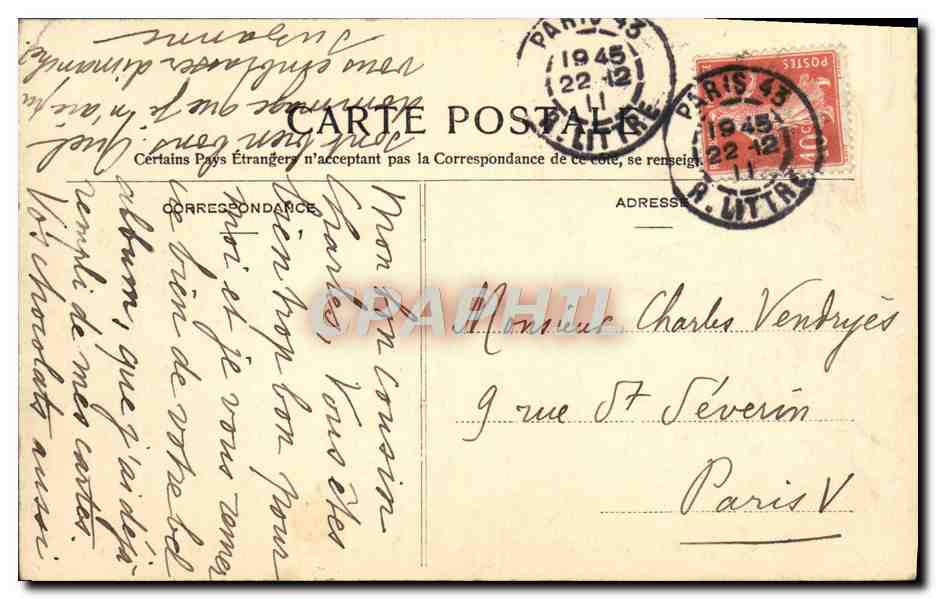 CARTE POSTALE
Certains Pays Étrangers n'acceptant pas la Correspondance de ce côté, se renseign
CORRESPONDANCE
ADRESSE
PARIS 43
19 45
22 12
11
R. LITTRÉ
PARIS 43
19 45
22 12
11
R. LITTRÉ
POSTES
10c
CPAPHIL
Monsieur Charles Vendryès
9 rue St Séverin
Paris V
Mon bon cousin
Charles, Vous êtes
bien trop bon pour
moi et je vous remer
cie bien de votre bel
album, que j'ai déjà
rempli de mes cartes.
Vos chocolats aussi
sont bien bons. Quel
dommage que je n'aie pu
vous embrasser dimanche.
Suzanne